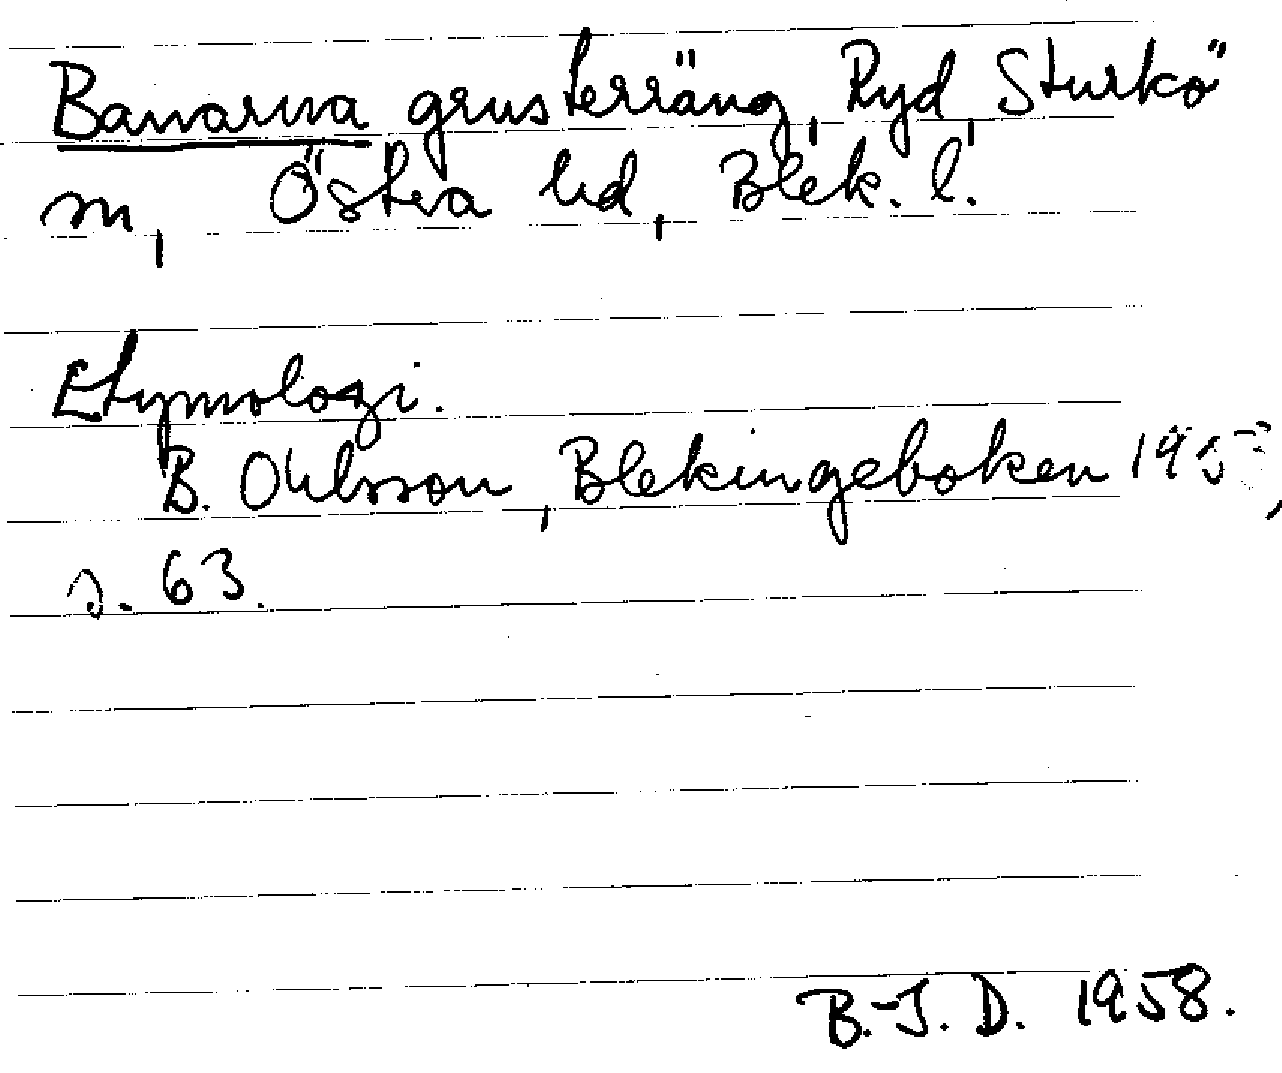 Banarna grusterräng, Ryd, Sturkö
sn, Östra hd, Blek. l.
Etymologi.
B. Ohlsson, Blekingeboken
s. 63.
B.-J. D. 1958.